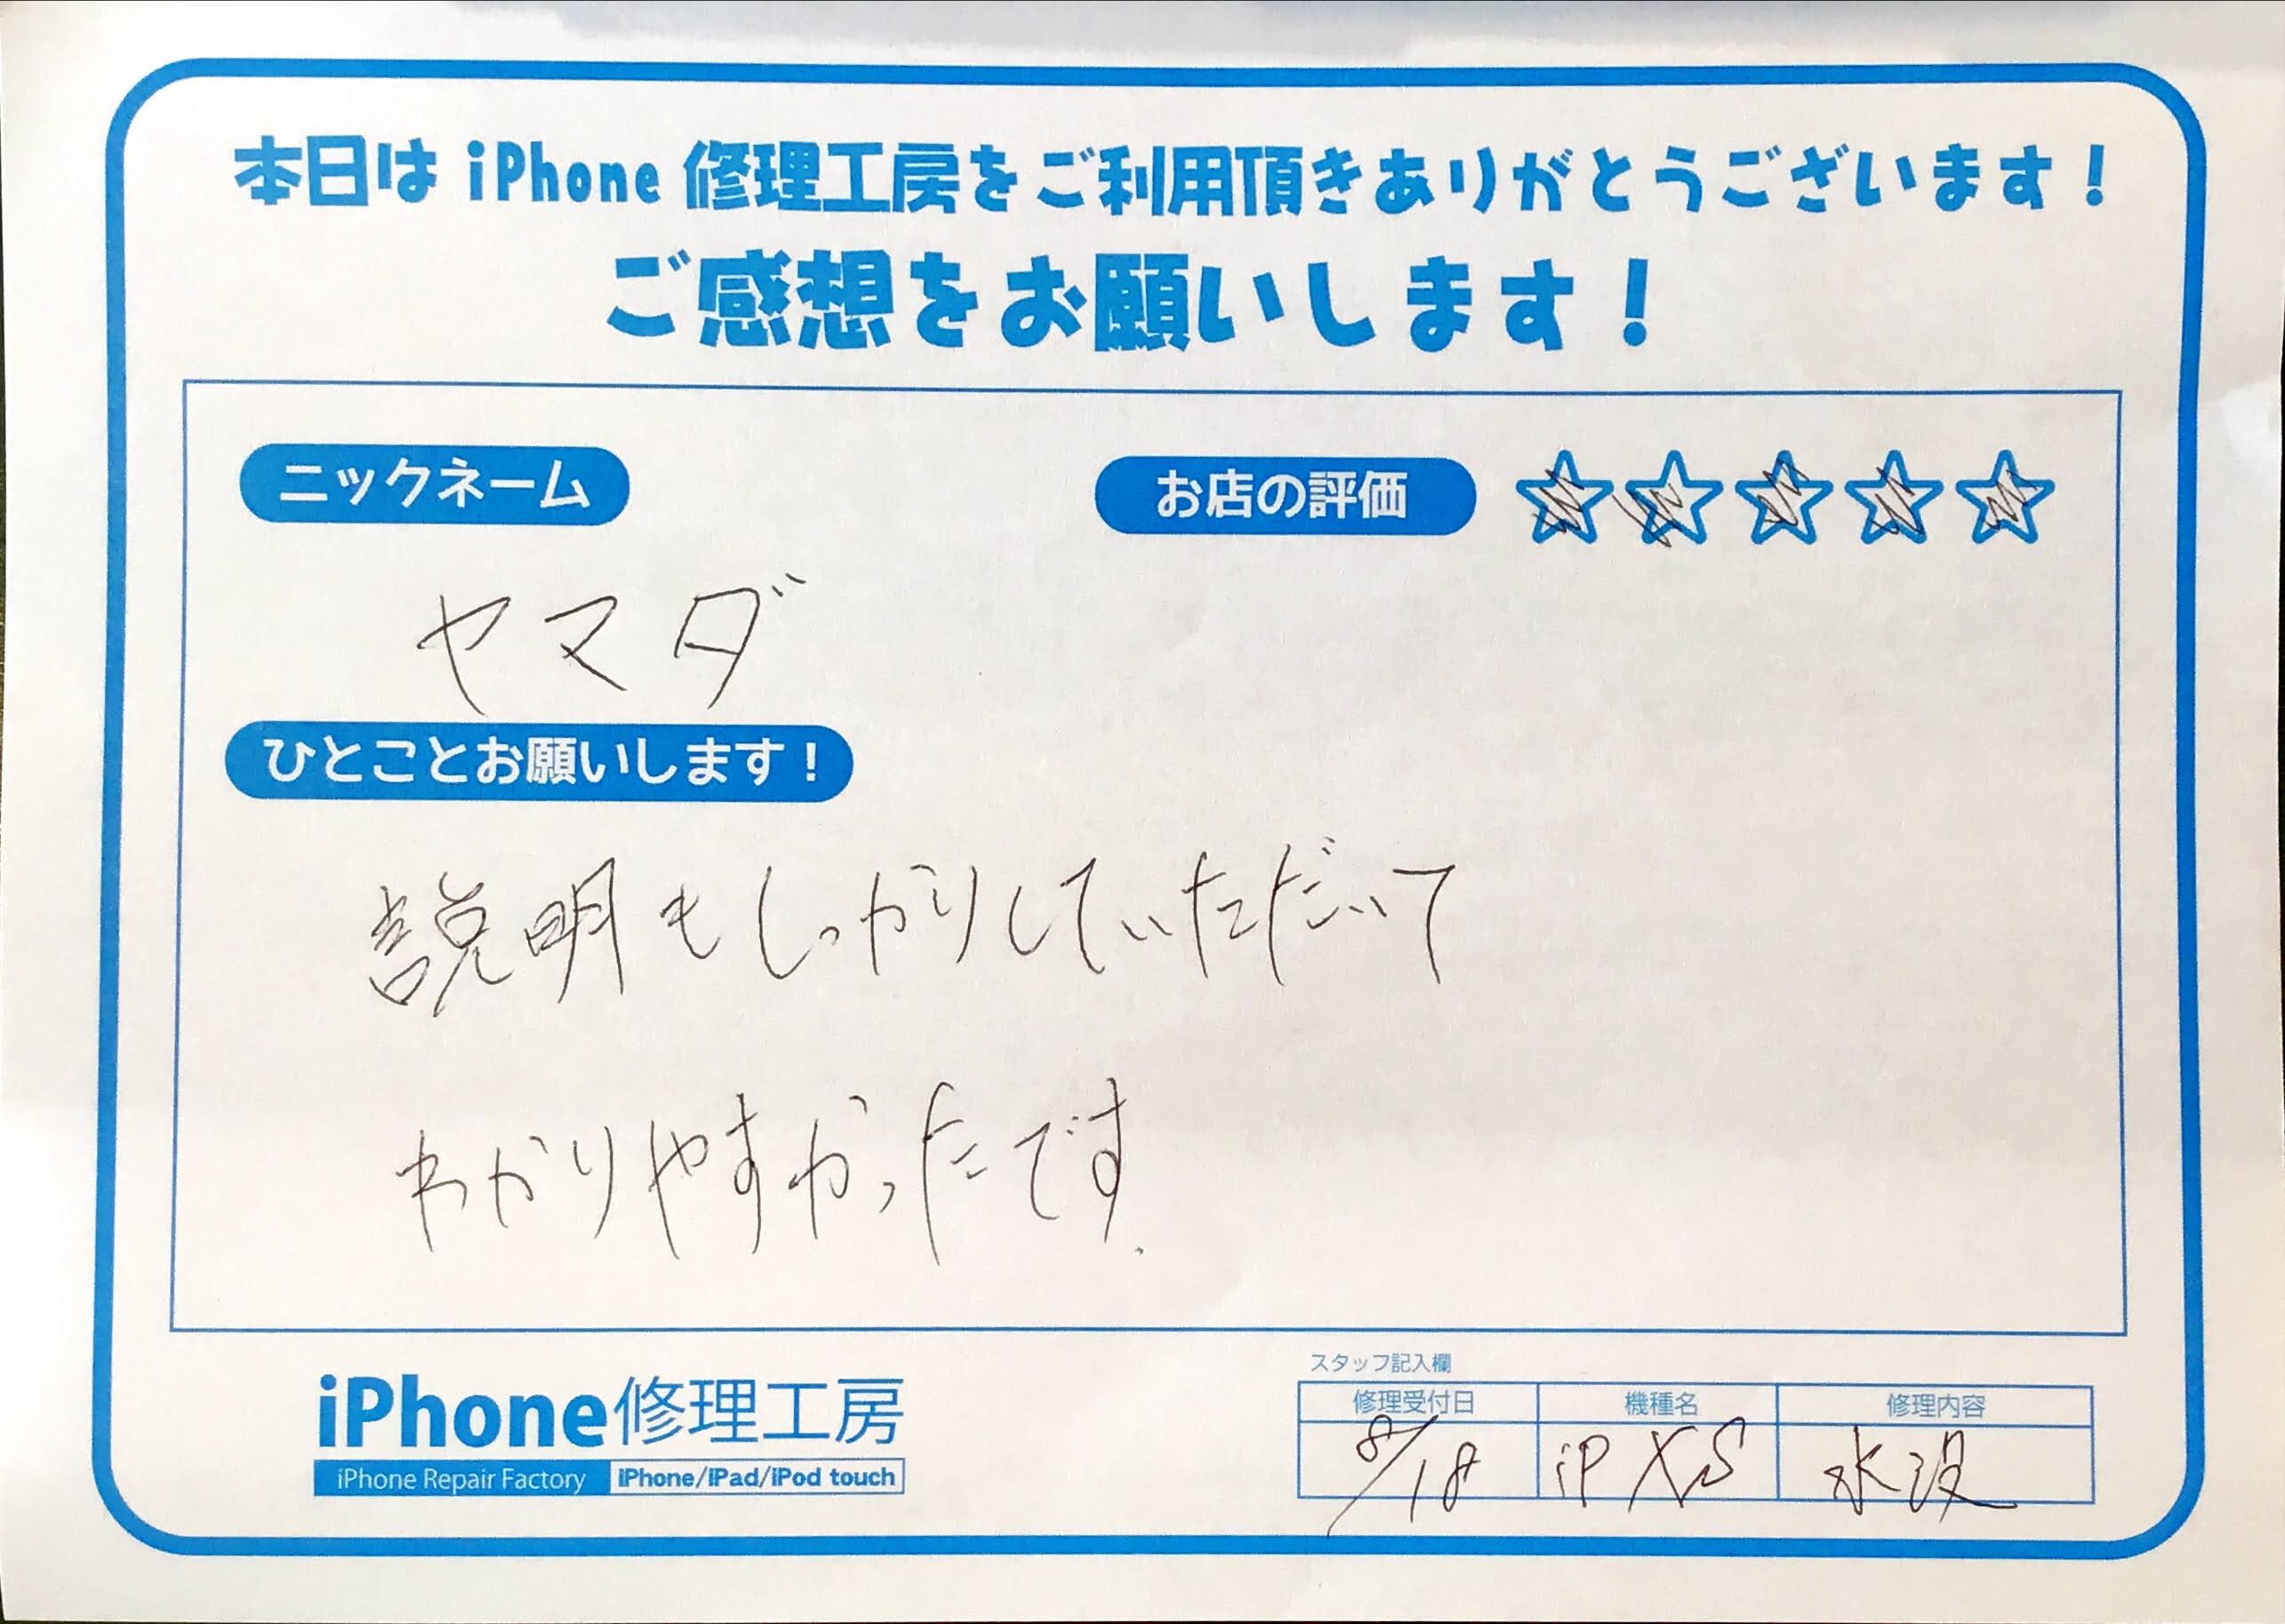 本日は iPhone 修理工房をご利用頂きありがとうございます！
ご感想をお願いします！
ニックネーム
お店の評価
ヤマダ
ひとことお願いします！
説明もしっかりしていただいて
わかりやすかったです.
iPhone修理工房
iPhone Repair Factory iPhone/iPad/iPod touch
スタッフ記入欄
修理受付日 機種名 修理内容
8/18 iP XS 水没